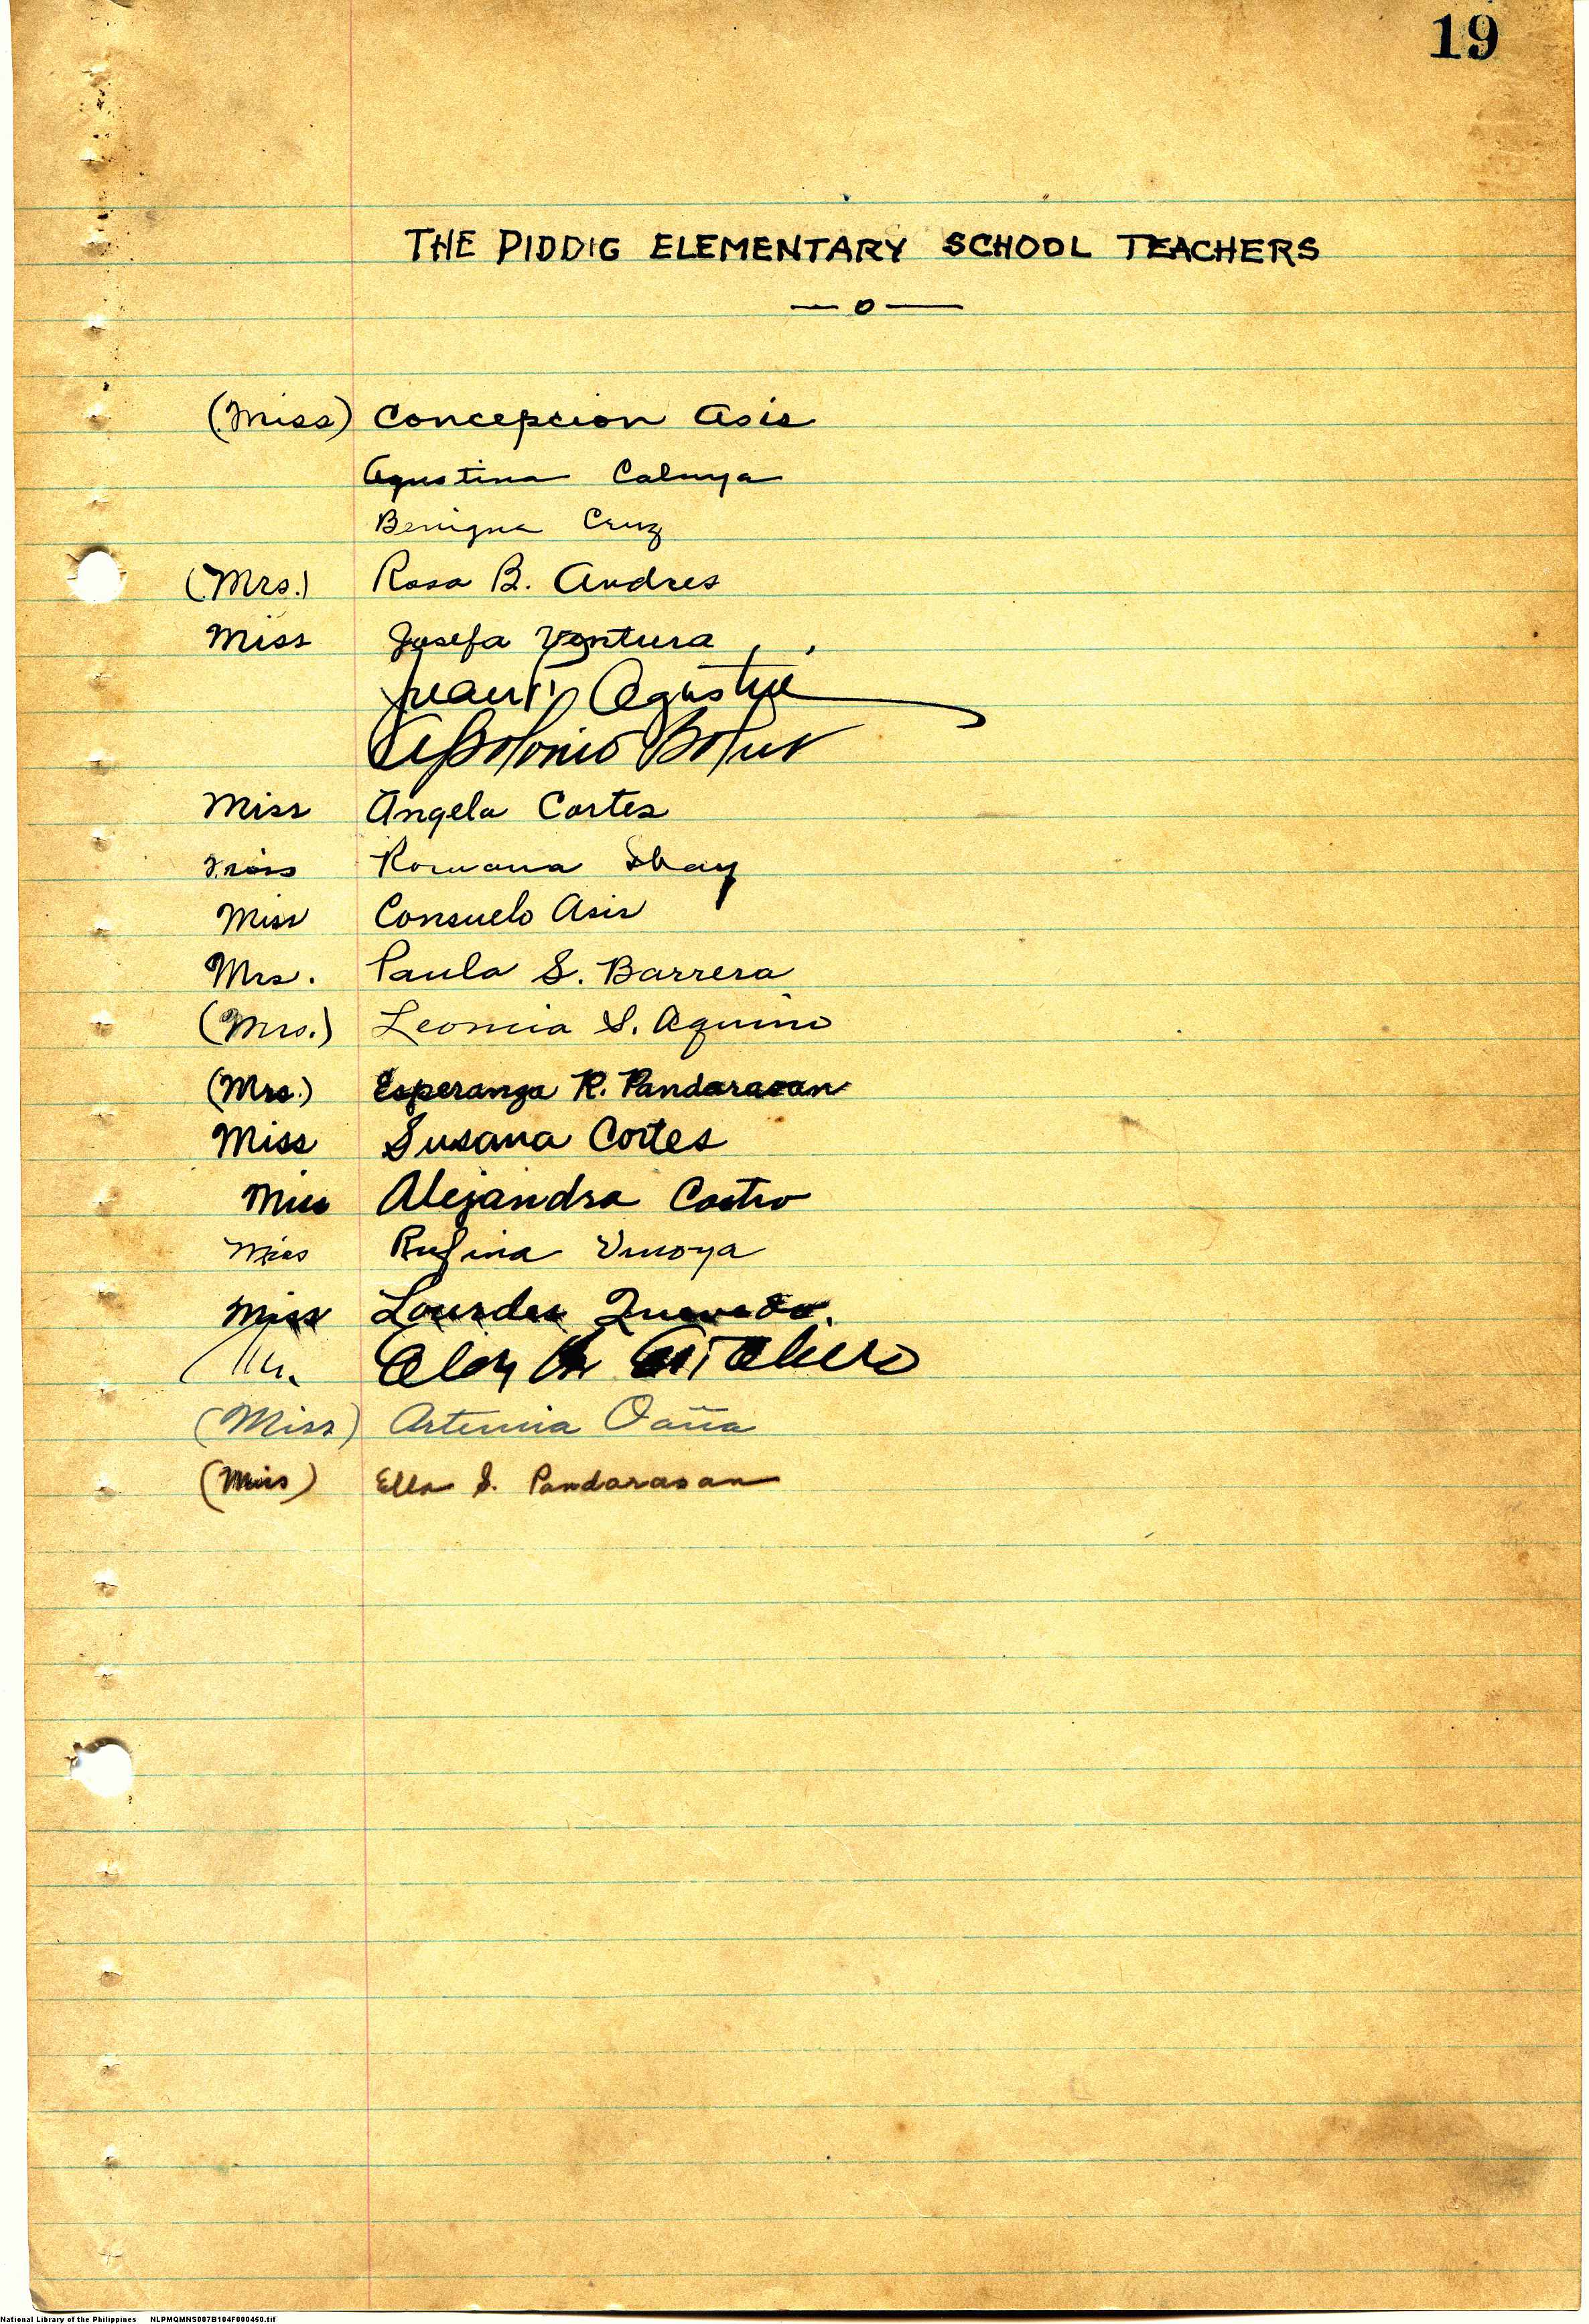 19
THE PIDDIG ELEMENTARY SCHOOL TEACHERS
— o —
(Miss) Concepcion Asis
Agustina Caluya
Benigna Cruz
(Mrs.) Rosa B. Andres
Miss Josefa Ventura
Agustin
Apolonio
Miss Angela Cortes
Miss Romana Ibay
Miss Consuelo Asis
Mrs. Paula S. Barrera
(Mrs.) Leoncia S. Aquino
(Mrs.) Esperanza R. Pandaraoan
Miss Susana Cortes
Miss Alejandra Castro
Miss Rufina Vinoya
Miss Lourdes Quevedo.
(Miss) Artemia Oaña
(Miss) Ella S. Pandaraoan
National Library of the Philippines NLPMQMNS007B104F000450.tif